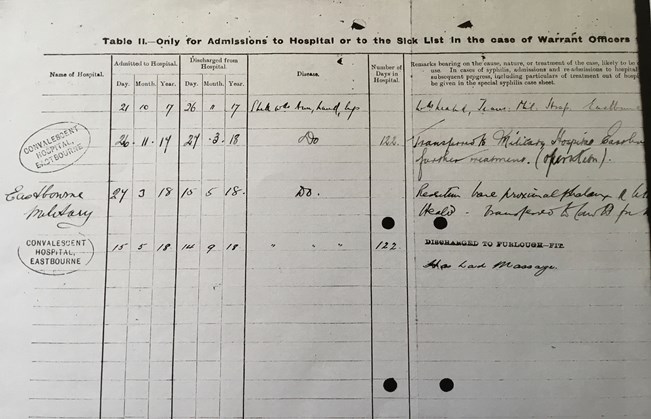 Table II.—Only for Admissions to Hospital or to the Sick List in the case of Warrant Officers
Name of Hospital.
Admitted to Hospital.
Discharged from Hospital.
Disease.
Number of Days in Hospital.
Remarks bearing on the cause, nature, or treatment of the case, likely to be
use. In cases of syphilis, admissions and re-admissions to hospital
subsequent progress, including particulars of treatment out of hosp
be given in the special syphilis case sheet.
Day. Month. Year. Day. Month. Year.
21 10 17 26 11 17
CONVALESCENT HOSPITAL, EASTBOURNE
26 · 11 · 17 27 · 3 · 18 Do 122. Transferred to Military Hospital
further treatment. (operation).
Eastbourne Military
27 3 18 15 5 18 Do. proximal phalanx
Transferred to
CONVALESCENT HOSPITAL, EASTBOURNE
15 5 18 14 9 18 " " " 122 DISCHARGED TO FURLOUGH—FIT.
Has had Massage